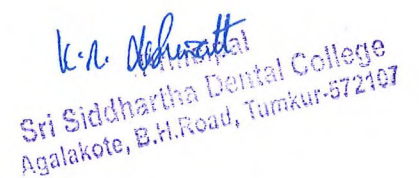 Principal
Sri Siddhartha Dental College
Agalakote, B.H.Road, Tumkur-572107